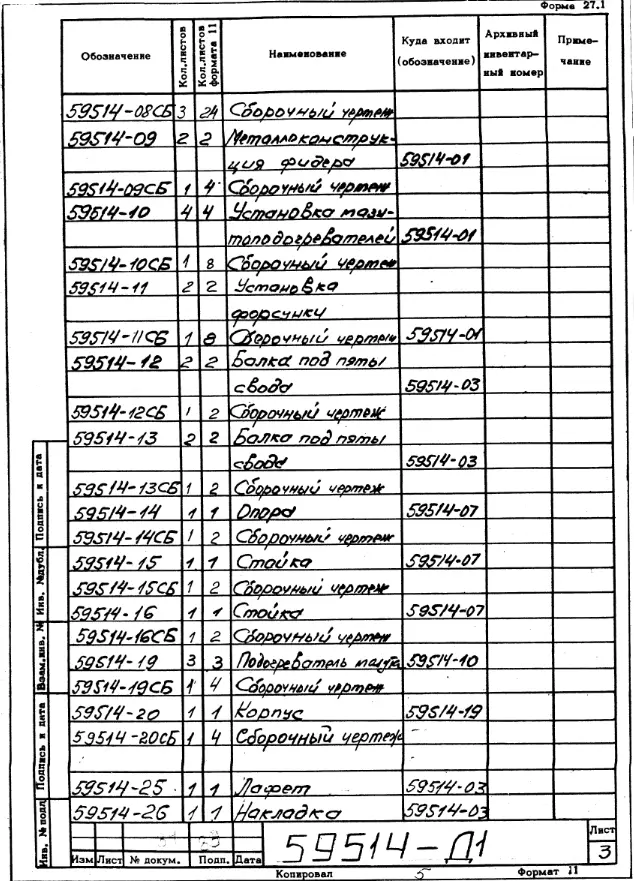 Форма 27.1
Обозначение Кол.листов Кол.листов формата 11 Наименование Куда входит (обозначение) Архивный инвентарный номер Примечание
59514-08СБ 3 24 Сборочный чертеж
59514-09 2 2 Металлоконструк-
ция фидера 59514-01
59514-09СБ 1 4 Сборочный чертеж
59514-10 4 4 Установка мазу-
топодогревателей 59514-01
59514-10СБ 1 8 Сборочный чертеж
59514-11 2 2 Установка
форсунки
59514-11СБ 1 8 Сборочный чертеж 59514-01
59514-12 2 2 Балка под пяты
свода 59514-03
59514-12СБ 1 2 Сборочный чертеж
59514-13 2 2 Балка под пяты
свода 59514-03
59514-13СБ 1 2 Сборочный чертеж
59514-14 1 1 Опора 59514-07
59514-14СБ 1 2 Сборочный чертеж
59514-15 1 1 Стойка 59514-07
59514-15СБ 1 2 Сборочный чертеж
59514-16 1 1 Стойка 59514-07
59514-16СБ 1 2 Сборочный чертеж
59514-19 3 3 Подогреватель мазута 59514-10
59514-19СБ 1 4 Сборочный чертеж
59514-20 1 1 Корпус 59514-19
59514-20СБ 1 4 Сборочный чертеж
59514-25 1 1 Лафет 59514-03
59514-26 1 1 Накладка 59514-03
Инв. № подл. Подпись и дата Взам.инв. № Инв. №дубл. Подпись и дата
Изм Лист № докум. Подп. Дата
59514-Д1
Лист
3
Копировал 5 Формат 11